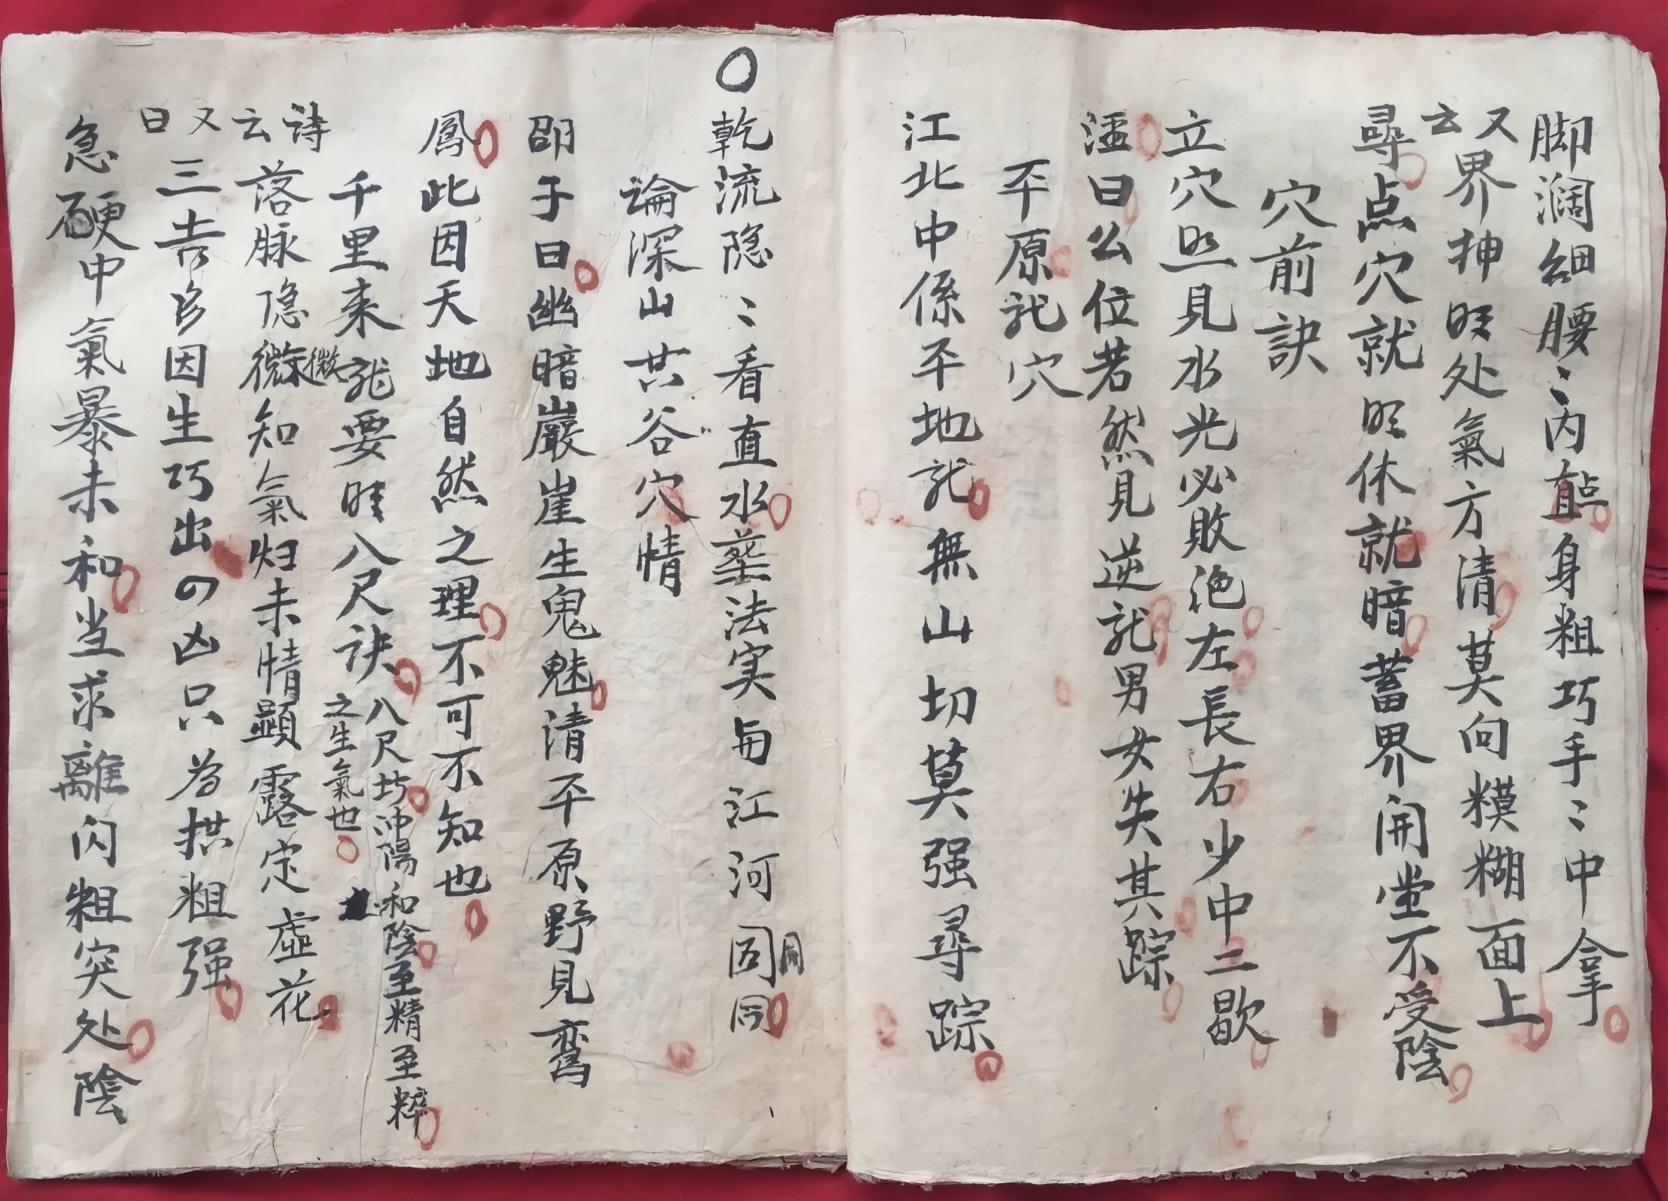 脚濶細腰〻内𥃝身粗巧手〻中拿
又云界抻旺处氣方清莫向糢糊面上
尋点穴就旺休就暗蓄界開堂不受陰
穴前訣
立穴照見水光必敗絶左長右少中二歇
溋曰公位若然見逆龍男女失其踪
平原龍穴
江北中係平地龍無山切莫强尋踪
乾流隐〻看直水塟法実与江河同
論深山共谷穴情
邵子曰幽暗巖崖生鬼魅清平原野見鸾
鳳此因天地自然之理不可不知也
千里来龍要旺八尺訣八尺坊冲陽和陰至精至粹之生氣也
詩云落脉隐微微知氣归未情顕露定虚花
又曰三吉多因生巧出四凶只為拱粗强
急硬中氣暴未和当求離闪粗突处陰